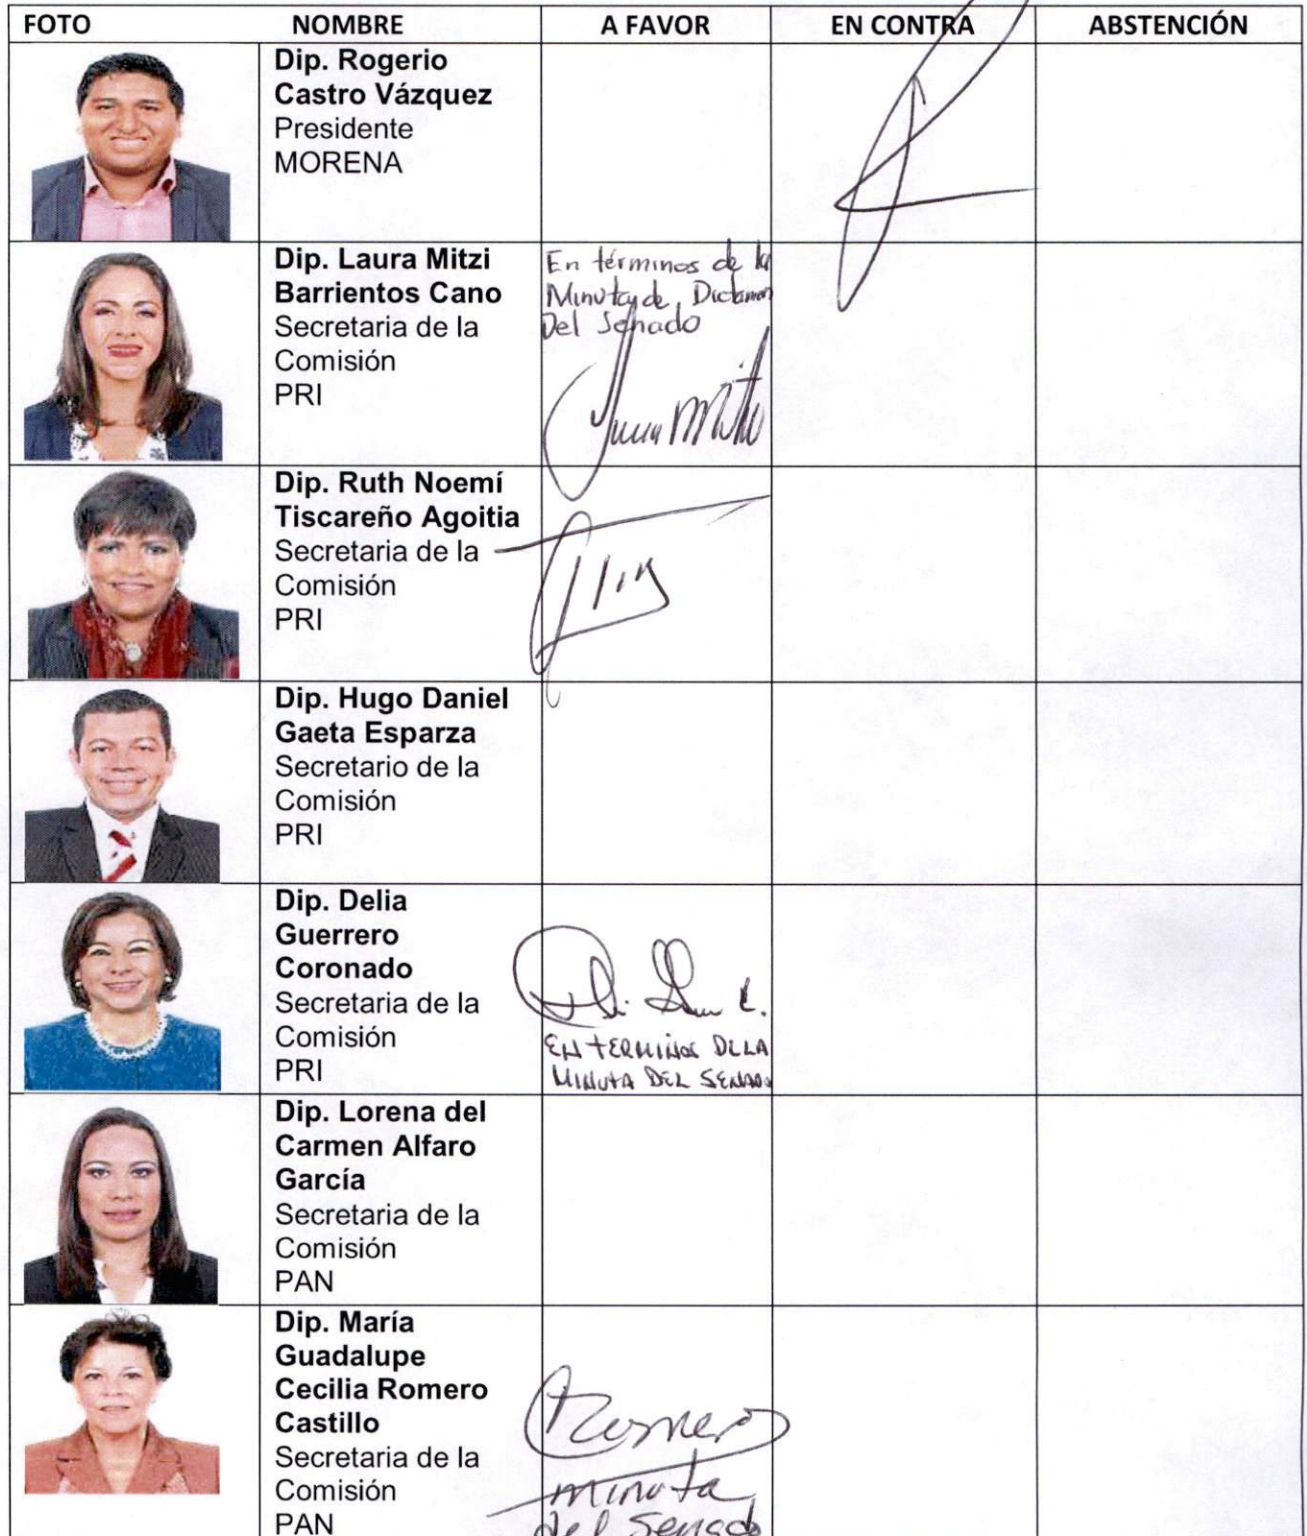 FOTO NOMBRE A FAVOR EN CONTRA ABSTENCIÓN
Dip. Rogerio
Castro Vázquez
Presidente
MORENA
Dip. Laura Mitzi
Barrientos Cano
Secretaria de la
Comisión
PRI
En términos de la
Minuta de Dictamen
Del Senado
Dip. Ruth Noemí
Tiscareño Agoitia
Secretaria de la
Comisión
PRI
Dip. Hugo Daniel
Gaeta Esparza
Secretario de la
Comisión
PRI
Dip. Delia
Guerrero
Coronado
Secretaria de la
Comisión
PRI
EN TERMINOS DE LA
MINUTA DEL SENADO
Dip. Lorena del
Carmen Alfaro
García
Secretaria de la
Comisión
PAN
Dip. María
Guadalupe
Cecilia Romero
Castillo
Secretaria de la
Comisión
PAN
Romero
minuta
del Senado